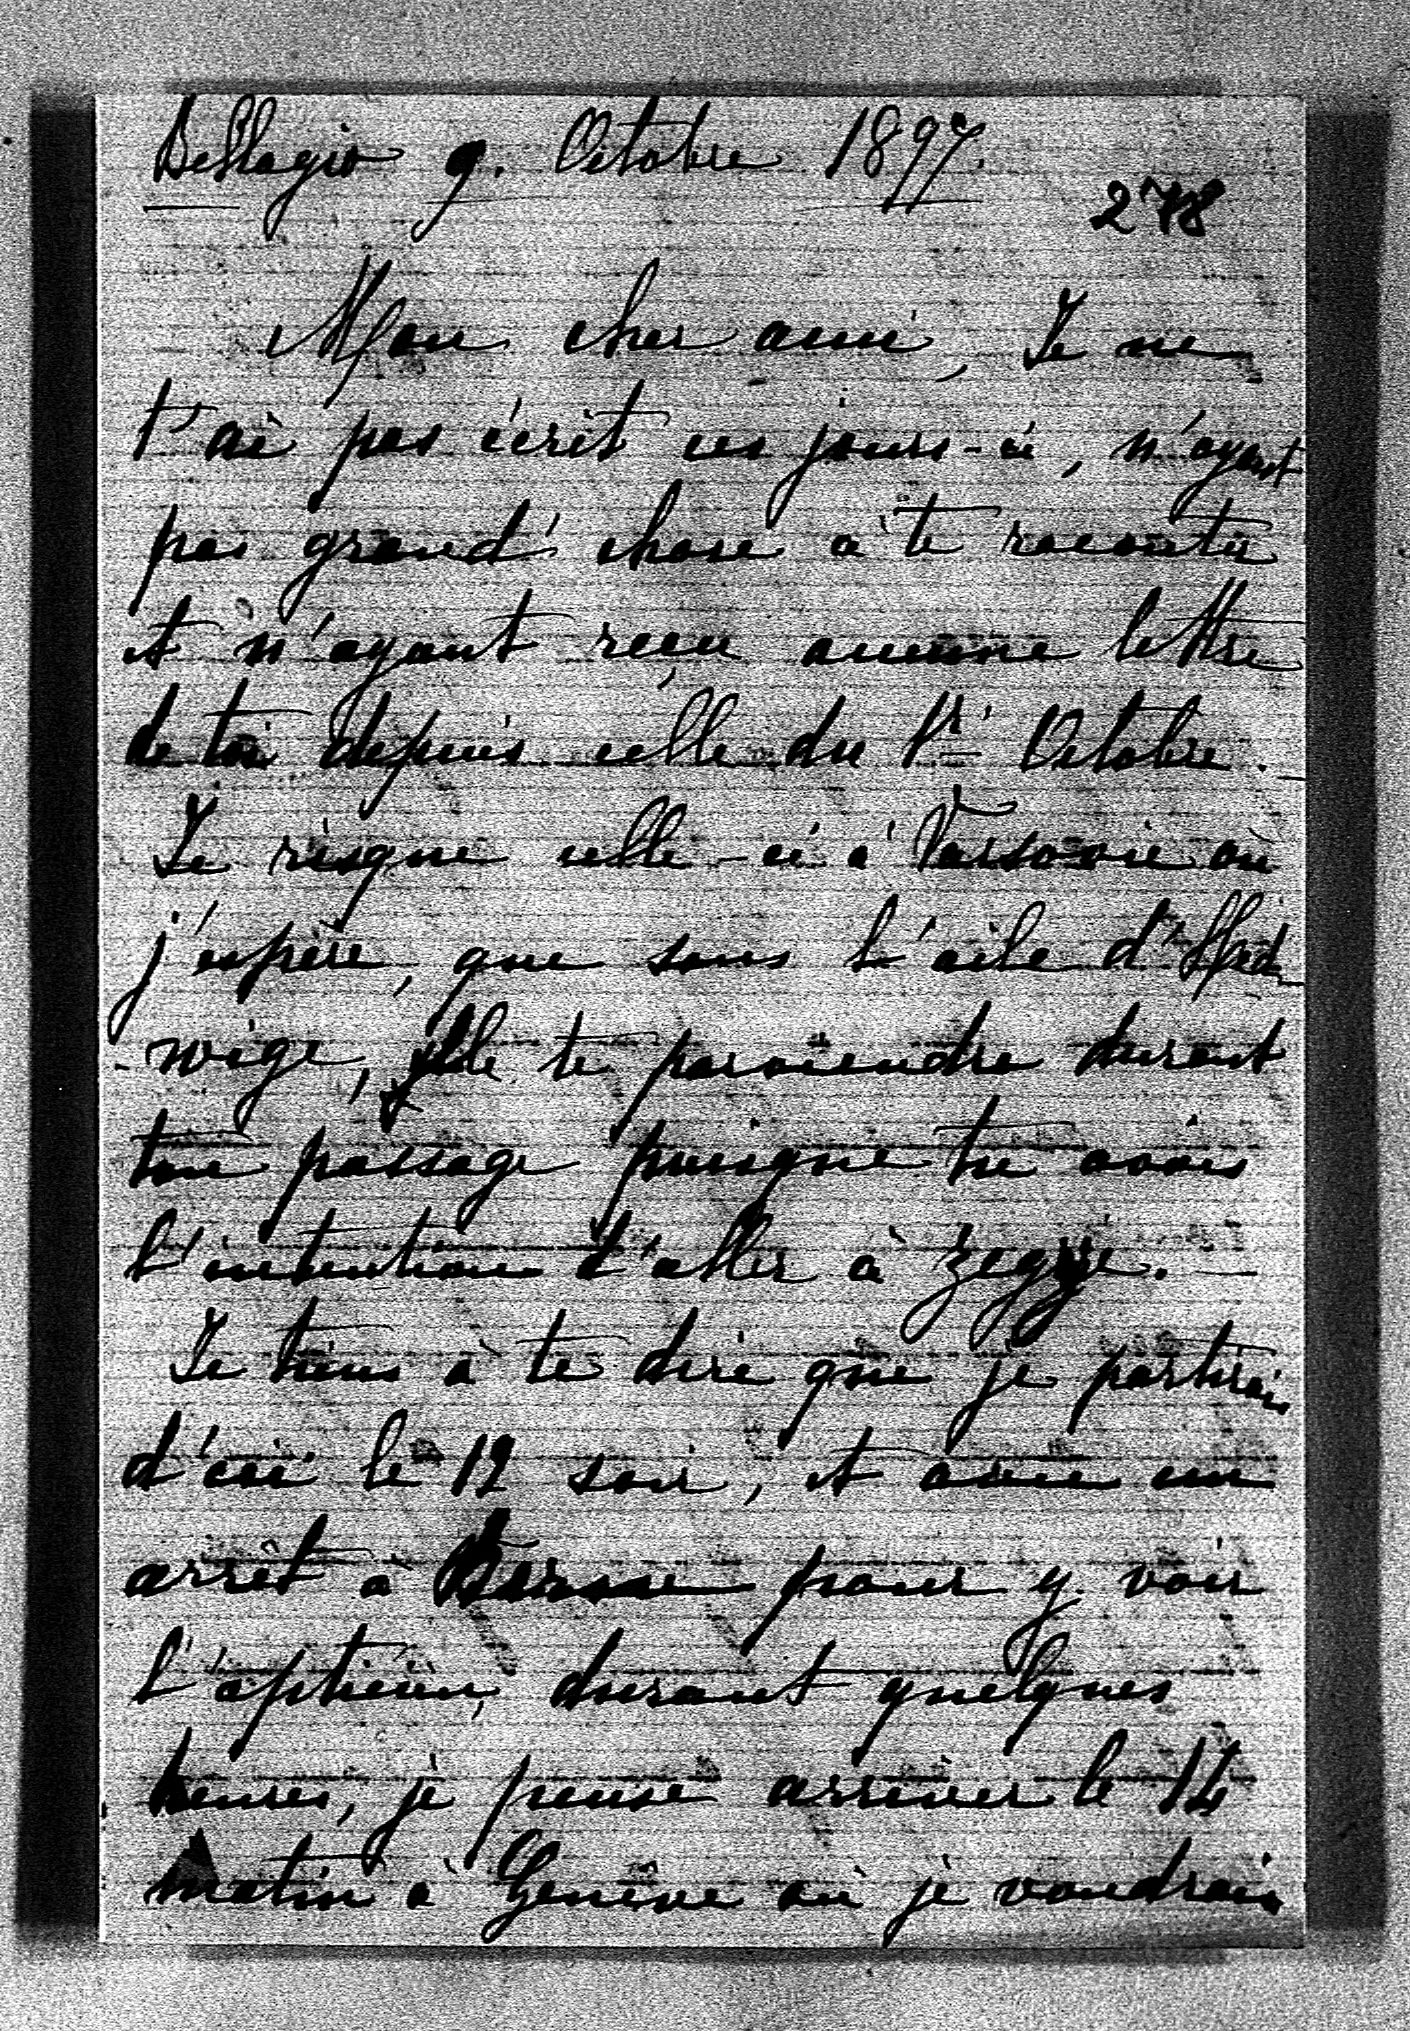 Bellagio 9. Octobre 1897.
278
Mon cher ami, Je ne
t'ai pas écrit ces jours-ci, n'ayant
pas grand' chose à te raconter
et n'ayant reçu aucune lettre
de toi depuis celle du 1r Octobre.
Je risque celle-ci à Varsovie où
j'espère, que sous l'aile d'Hed-
-wige, elle te parviendra durant
ton passage puisque tu avais
l'intention d'aller à
Je tiens à te dire que je partirai
d'ici le 12 soir, et avec un
arrêt à pour y voir
l'opticien, durant quelques
heures, je pense arriver le 14
matin à Genève où je voudrais